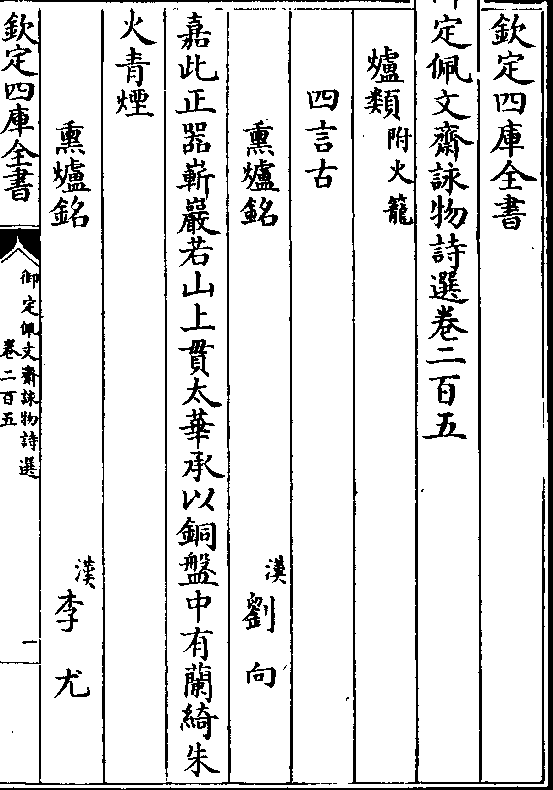 欽定四庫全書
御定佩文齋詠物詩選卷二百五
爐類附火籠
四言古
熏爐銘 漢劉向
嘉此正器嶄巖若山上貫太華承以銅盤中有蘭綺朱
火青煙
熏爐銘 漢李尤
欽定四庫全書
御定佩文齋詠物詩選
卷二百五
一